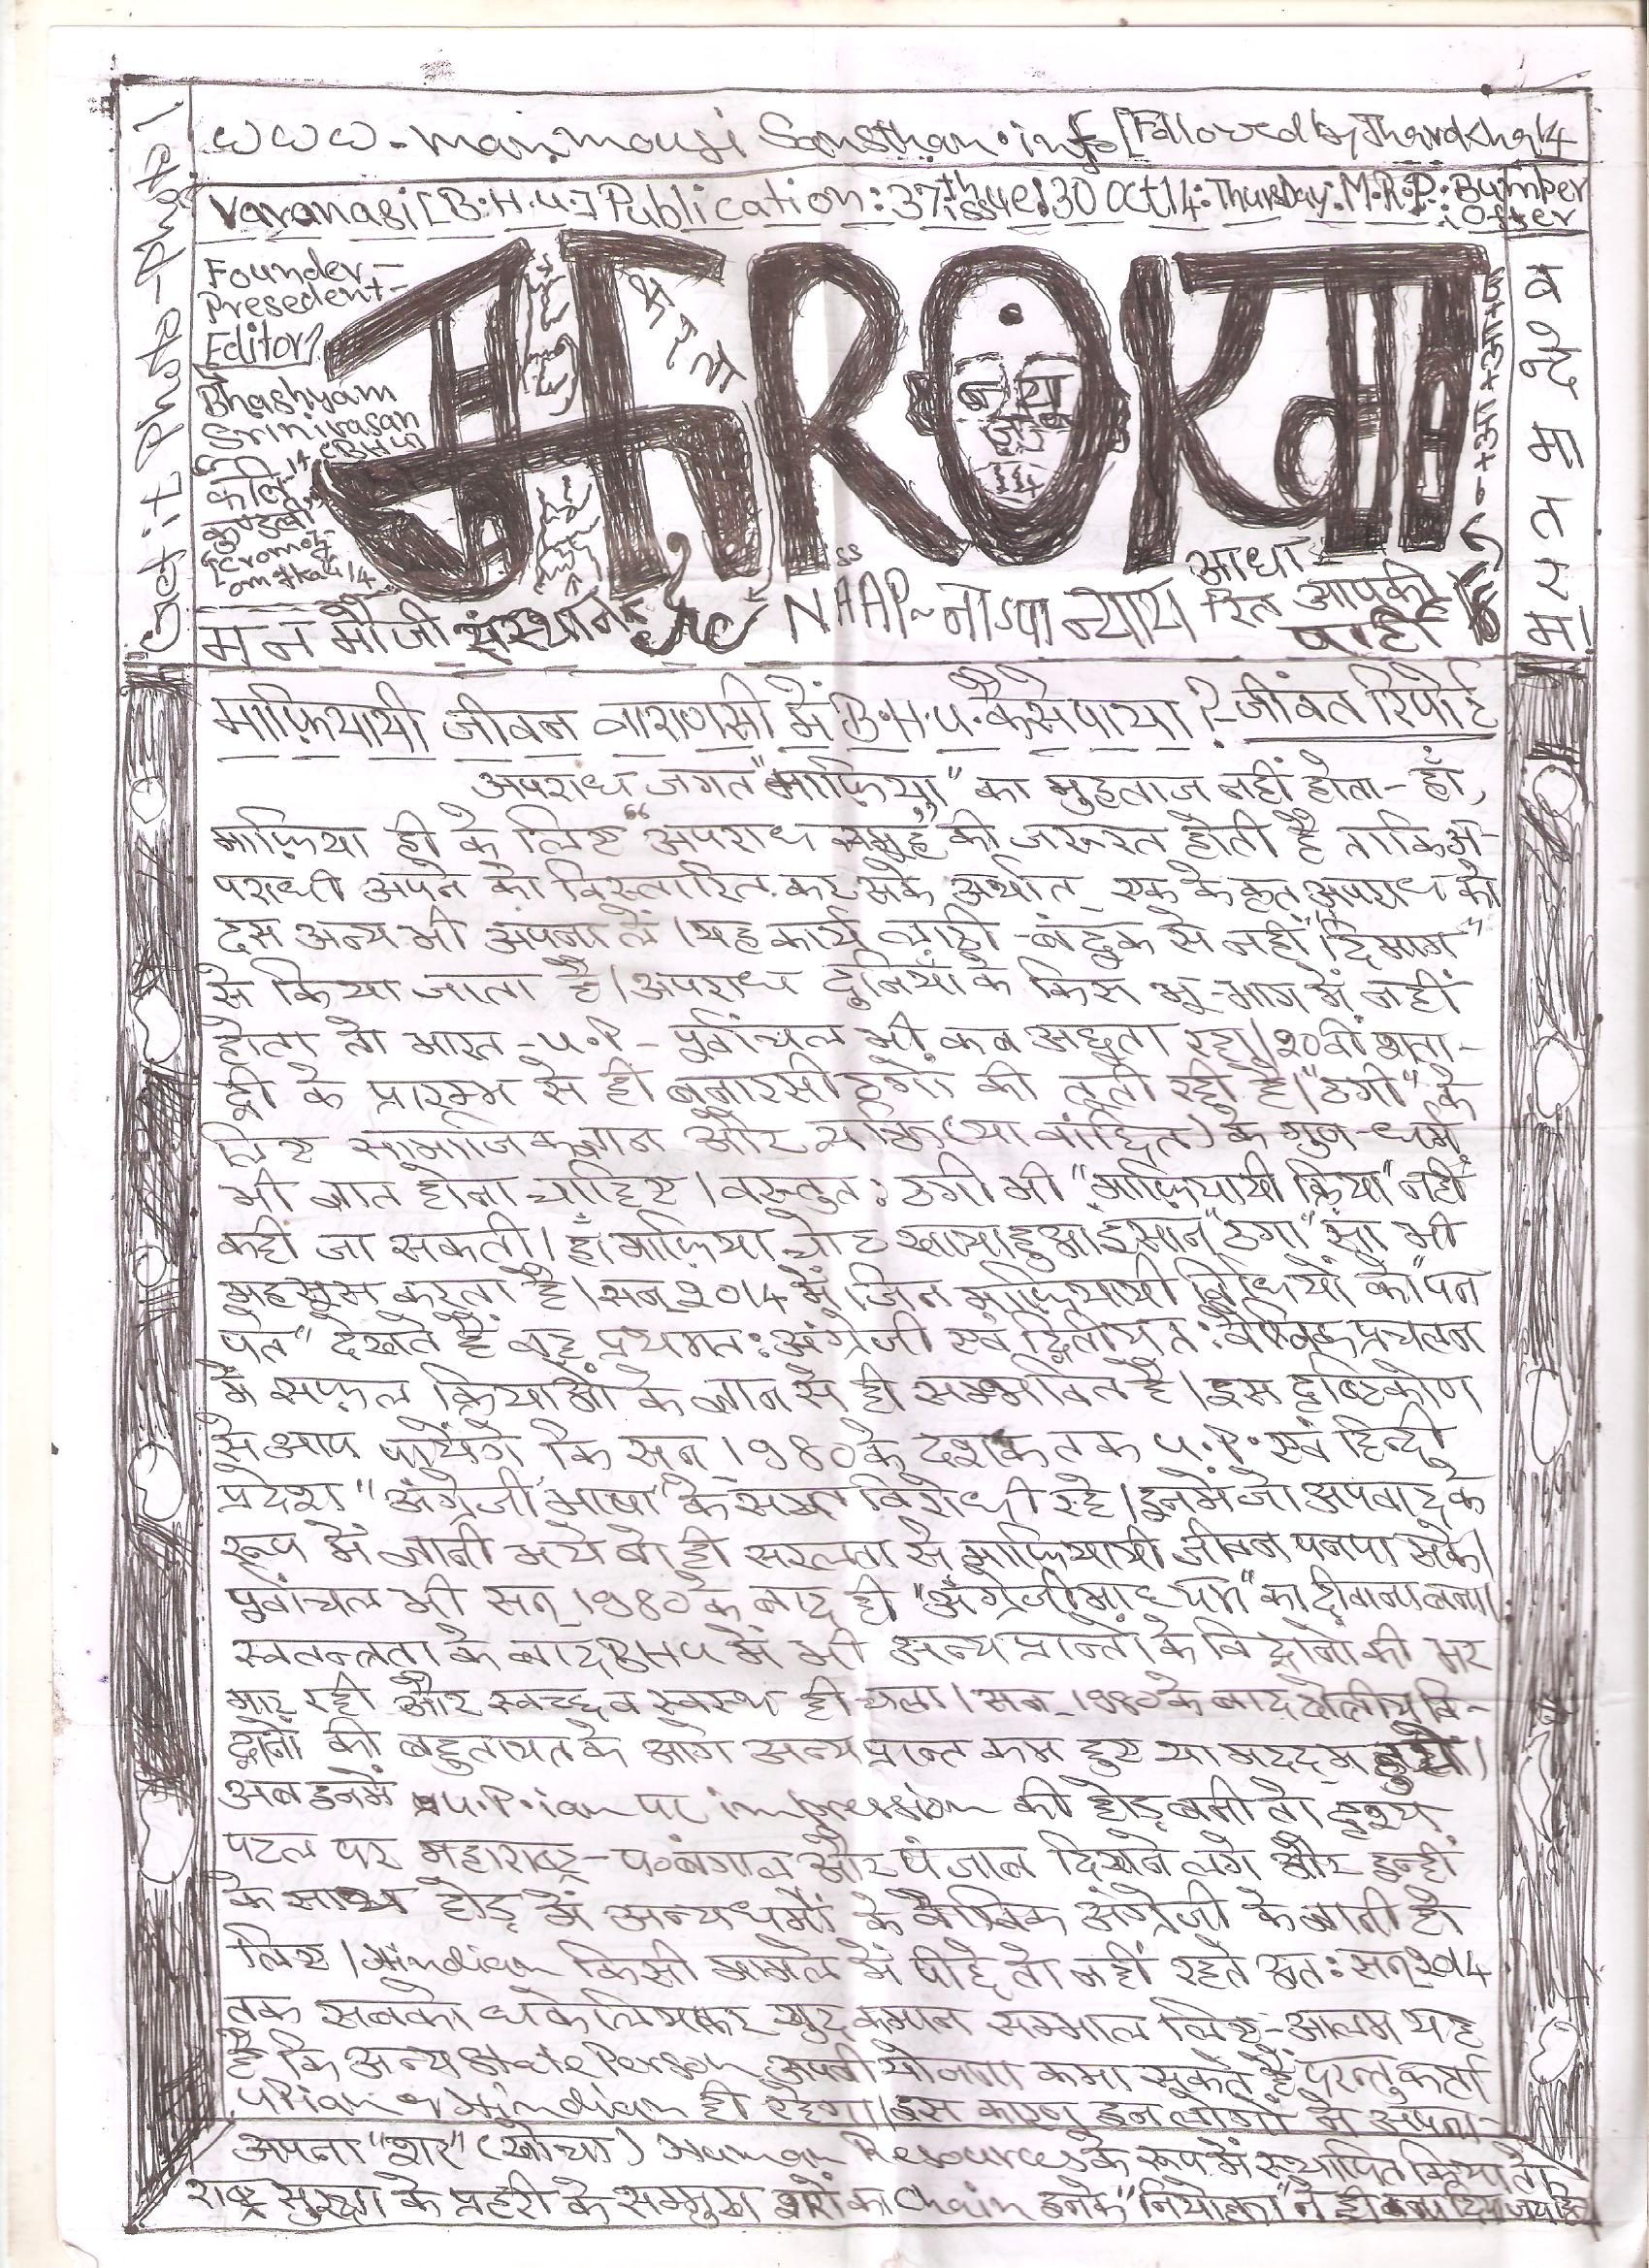 www.manmouji Sansthan.info [Followed by Jharokha14
Varanasi [B.H.U.] Publication: 37th issue: 30 Oct14: Thursday: M.R.P.: Bumper Offer
Get it Photo-Photo!
वन्दे मातरम!
Founder-
Presedent-
Editor
Bhashyam
Srinivasan
(BHU)
झाROKHा
मन मौजी संस्थान
NAAP~नाSपा न्याय आधा-
रित आपकी
पार्टी
माफ़ियायी जीवन वाराणसी में B.H.U. कैसे पाया?-जीवंत रिपोर्ट
अपराध जगत "माफ़िया" का मुहताज नहीं होता- हाँ,
माफ़िया ही के लिए "अपराध समूह" की जरूरत होती है ताकि अ-
पराधी अपने को विस्तारित कर सके अर्थात् एक के कृत अपराध को
दस अन्य भी अपना लें। यह कार्य लाठी-बंदूक से नहीं "दिमाग"
से किया जाता है। अपराध दुनियाँ के किस भू-भाग में नहीं
होता तो भारत-U.P-पूर्वांचल भी कब अछूता रहा। २०वीं शता-
ब्दी के प्रारम्भ से ही बनारसी ठगों की तूती रही है। "ठगी" के
लिए सामाजिक ज्ञान और व्यक्ति (या वांछित) के गुण-धर्म
भी ज्ञात होना चाहिए। वस्तुत: ठगी भी "माफ़ियायी क्रिया" नहीं
कही जा सकती। हाँ माफ़िया चोट खाया हुआ इंसान "ठगा" सा भी
महसूस करता है। सन् २०१४ में जिन माफ़ियायी विधियों को "पन
पते" देखते हैं वह प्रथमत: अंग्रेजी एवं द्वितीयत: वैश्विक प्रचलन
के सफ़ल क्रियाओं के ज्ञान से ही सम्भावित है। इस दृष्टिकोण
से आप पायेंगे कि सन् १९८० के दशक तक U.P. एवं हिन्दी
प्रदेश "अंग्रेजी भाषा" के सख्त विरोधी रहे। इनमें जो अपवाद के
रूप में ज्ञानी भये वो ही सरलता से माफ़ियायी जीवन पनपा सके।
पूर्वांचल भी सन् १९८० के बाद ही "अंग्रेजी माध्यम" का दीवाना बना।
स्वतन्त्रता के बाद BHU में भी अन्य प्रान्तों के विद्वानों की भर
मार रही और स्वच्छ व स्वस्थ ही चला। सन् १९८० के बाद क्षेत्रीय वि-
द्वानों की बहुतायत के आगे अन्य प्रान्त कम हुए या मदद्गार हुये।
अब इनमें U.P.ian पर impression की होड़ बनी तो दृश्य
पटल पर महाराष्ट्र-प०बंगाल और पंजाब दिखने लगे और इन्हीं
के साथ होड़ में अन्य धर्मों के वैश्विक अंग्रेजी के ज्ञानी हो
लिए। Hindian किसी मामले में पीछे तो नहीं रहते अत: सन् २०१४
तक सबको धकेलियाकर खुद कमान सम्भाल लिए-आलम यह
है कि अन्य State Person अपनी योजना कमा सकते हैं परन्तु कर्ता
UPian व Hindian ही रहेगा। इस कारण इन लोगों ने अपना-
अपना "शर" (खोंचा) Human Resources के रूप में स्थापित किया तो
राष्ट्र सुरक्षा के प्रहरी के सम्मुख शरों का chain इनके "नियोक्ता" ने ही बना दिया जयहिन्द